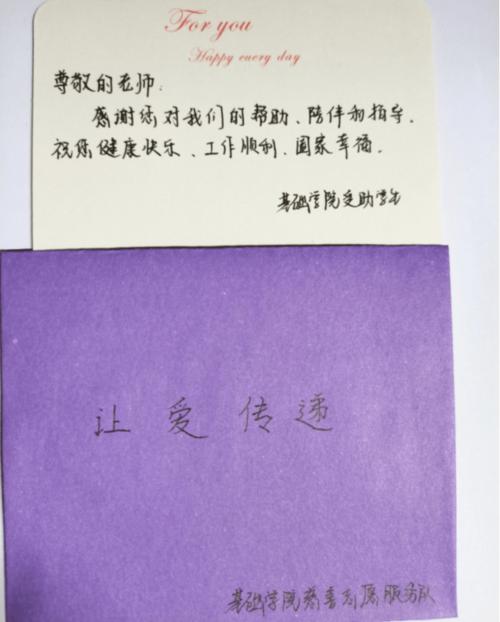 For you
Happy every day
尊敬的老师:
感谢您对我们的帮助、陪伴和指导.
祝您健康快乐、工作顺利、阖家幸福.
基础学院受助学生
让爱传递
基础学院慈善志愿服务队